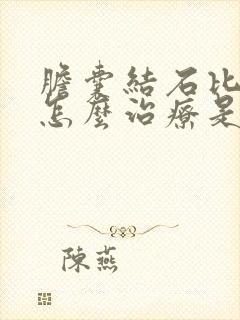 膽囊結石比
怎麼治療是
陳燕